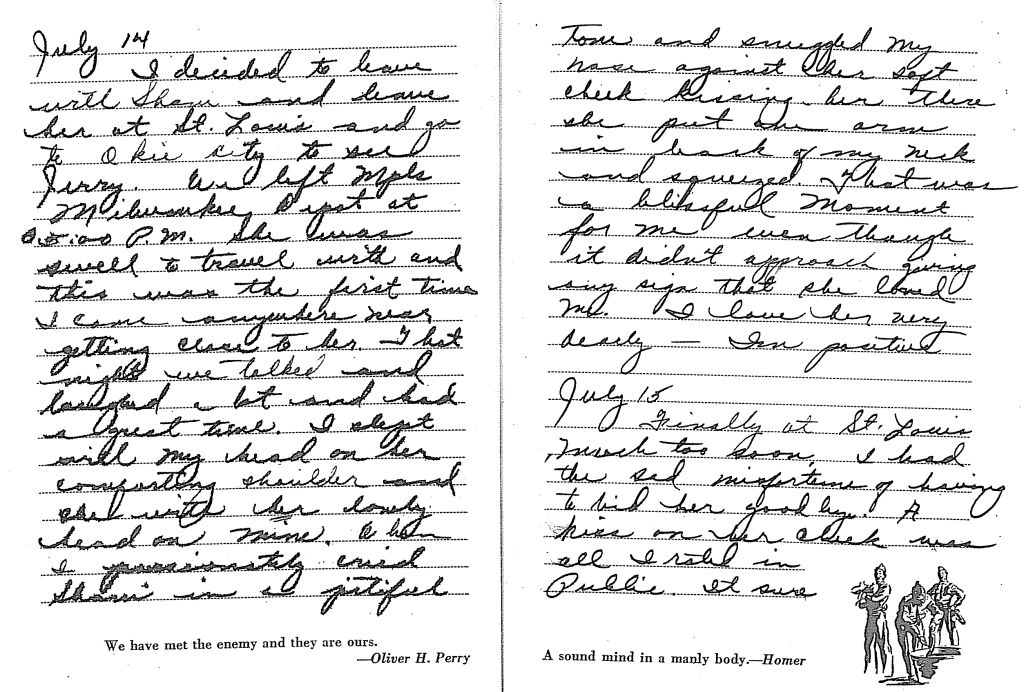 July 14
I decided to leave
with Sham and leave
her at St. Louis and go
to Okie city to see
Jerry. We left Mpls
Milwaukee Depot at
5:00 P.M. She was
swell to travel with and
this was the first time
I came anywhere near
getting close to her. That
night we talked and
laughed a lot and had
a great time. I slept
with my head on her
comforting shoulder and
she with her lovely
head on mine. When
I passionately cried
"Sham" in a pitiful
We have met the enemy and they are ours.
—Oliver H. Perry
Tone and snuggled my
nose against her soft
cheek kissing her there
she put one arm
in back of my neck
and squeezed. That was
a blissful moment
for me even though
it didn't approach giving
any sign that she loved
me. I love her very
dearly — I'm positive
July 15
Finally at St. Louis
much too soon, I had
the sad misfortune of having
to bid her goodbye. A
kiss on her cheek was
all I rated in
Public. It sure
A sound mind in a manly body.—Homer